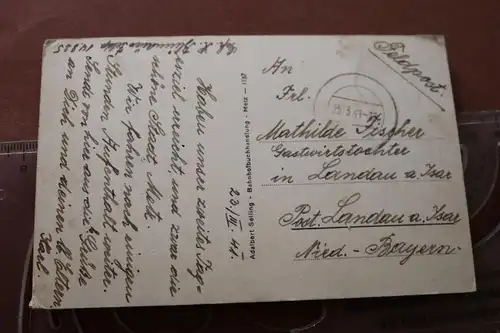 Feldpost
An
Frl.
Mathilde Fischer
Gastwirtstochter
in Landau a. Isar
Post. Landau a. Isar
Nied.-Bayern.
Adalbert Seiling - Bahnhofbuchhandlung - Metz - 1197
23./III. 41.
Haben unser zweites Tages-
ziel erreicht, und zwar die
schöne Stadt Metz.
Wir fahren nach einigen
Stunden Aufenthalt weiter.
Sende von hier aus die Grüße
an Dich und deinen lb. Eltern
Karl